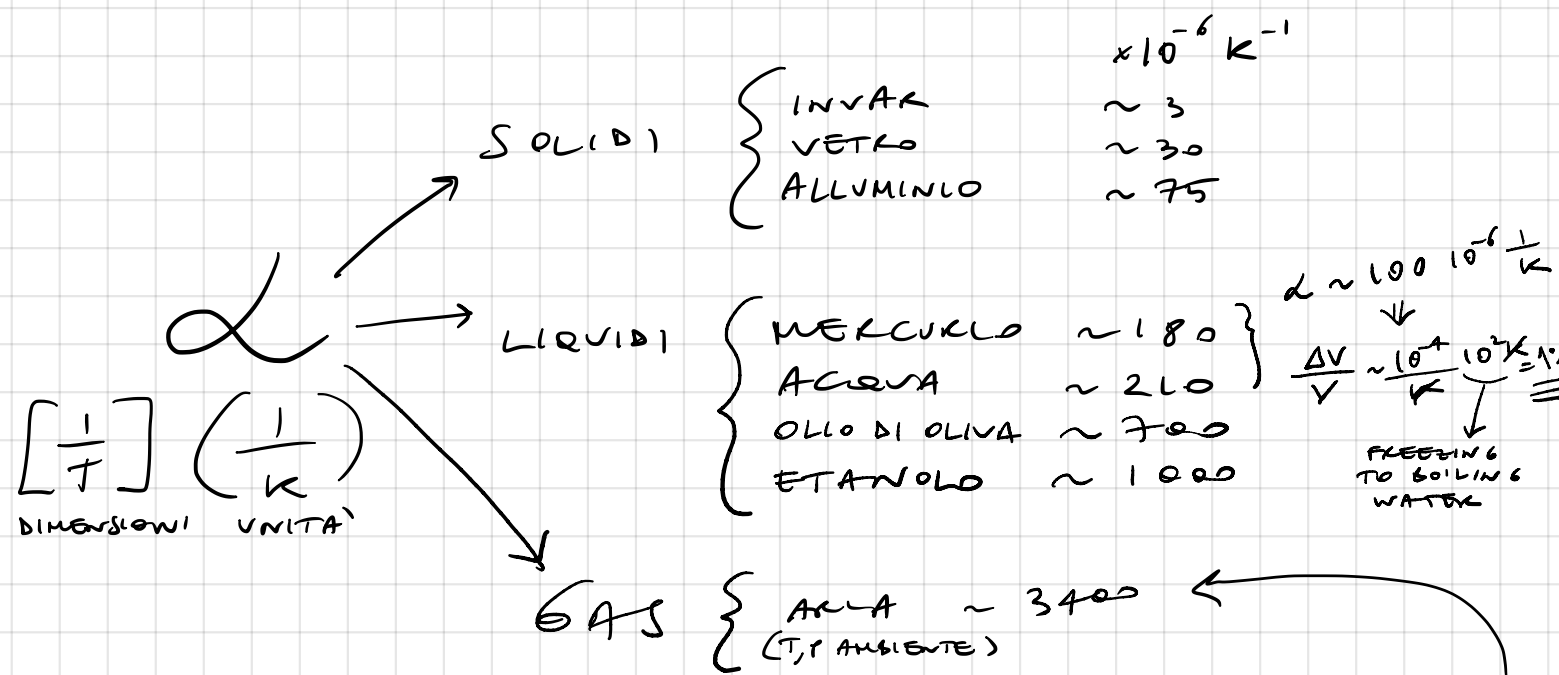 ×10⁻⁶ K⁻¹
SOLIDI
INVAR ~ 3
VETRO ~ 30
ALLUMINIO ~ 75
α
[1/T] (1/K)
DIMENSIONI UNITA'
LIQUIDI
MERCURIO ~ 180
ACQUA ~ 210
OLIO DI OLIVA ~ 700
ETANOLO ~ 1000
α ~ 100 10⁻⁶ 1/K
⇓
ΔV/V ~ 10⁻⁴/K 10²K = 1%
FREEZING
TO BOILING
WATER
GAS
ARIA ~ 3400
(T, P AMBIENTE)